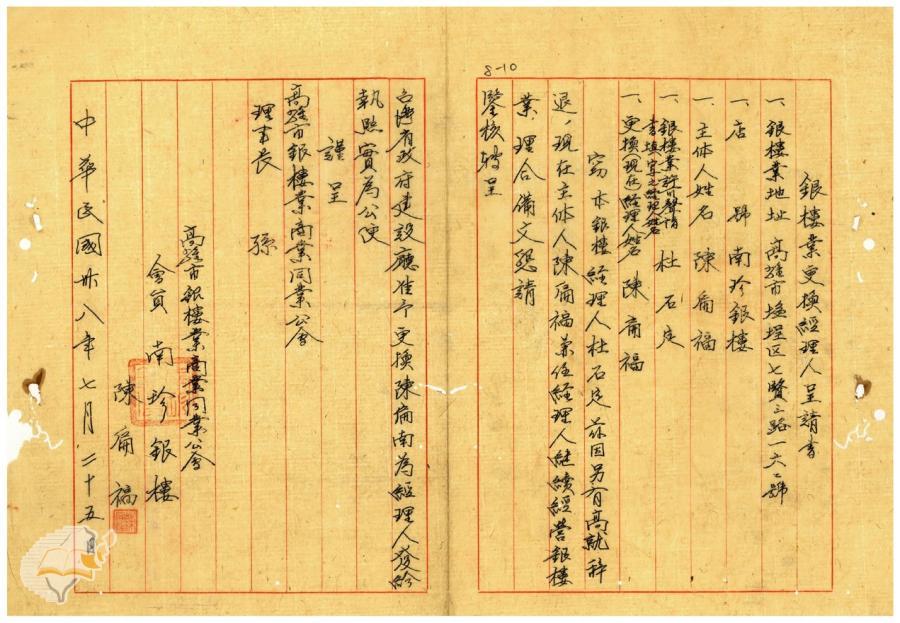 8-10
銀樓業更換經理人呈請書
一、銀樓業地址 高雄市塩埕区七賢三路一六二號
一、店號 南珍銀樓
一、主体人姓名 陳扁福
一、銀樓業許可聲請書填寫之經理人姓名 杜石定
一、更換(現任)經理人姓名 陳扁福
窃本銀樓經理人杜石定茲因另有高就辞
退，現在主体人陳扁福兼任經理人継續經営銀樓
業，理合備文懇請
鑒核轉呈
台灣省政府建設廳准予更換陳扁南為經理人發給
執照實為公便
謹呈
高雄市銀樓業商業同業公會
理事長 孫
高雄市銀樓業商業同業公會
會員 南珍銀樓
陳扁福
中華民國卅八年七月二十五日